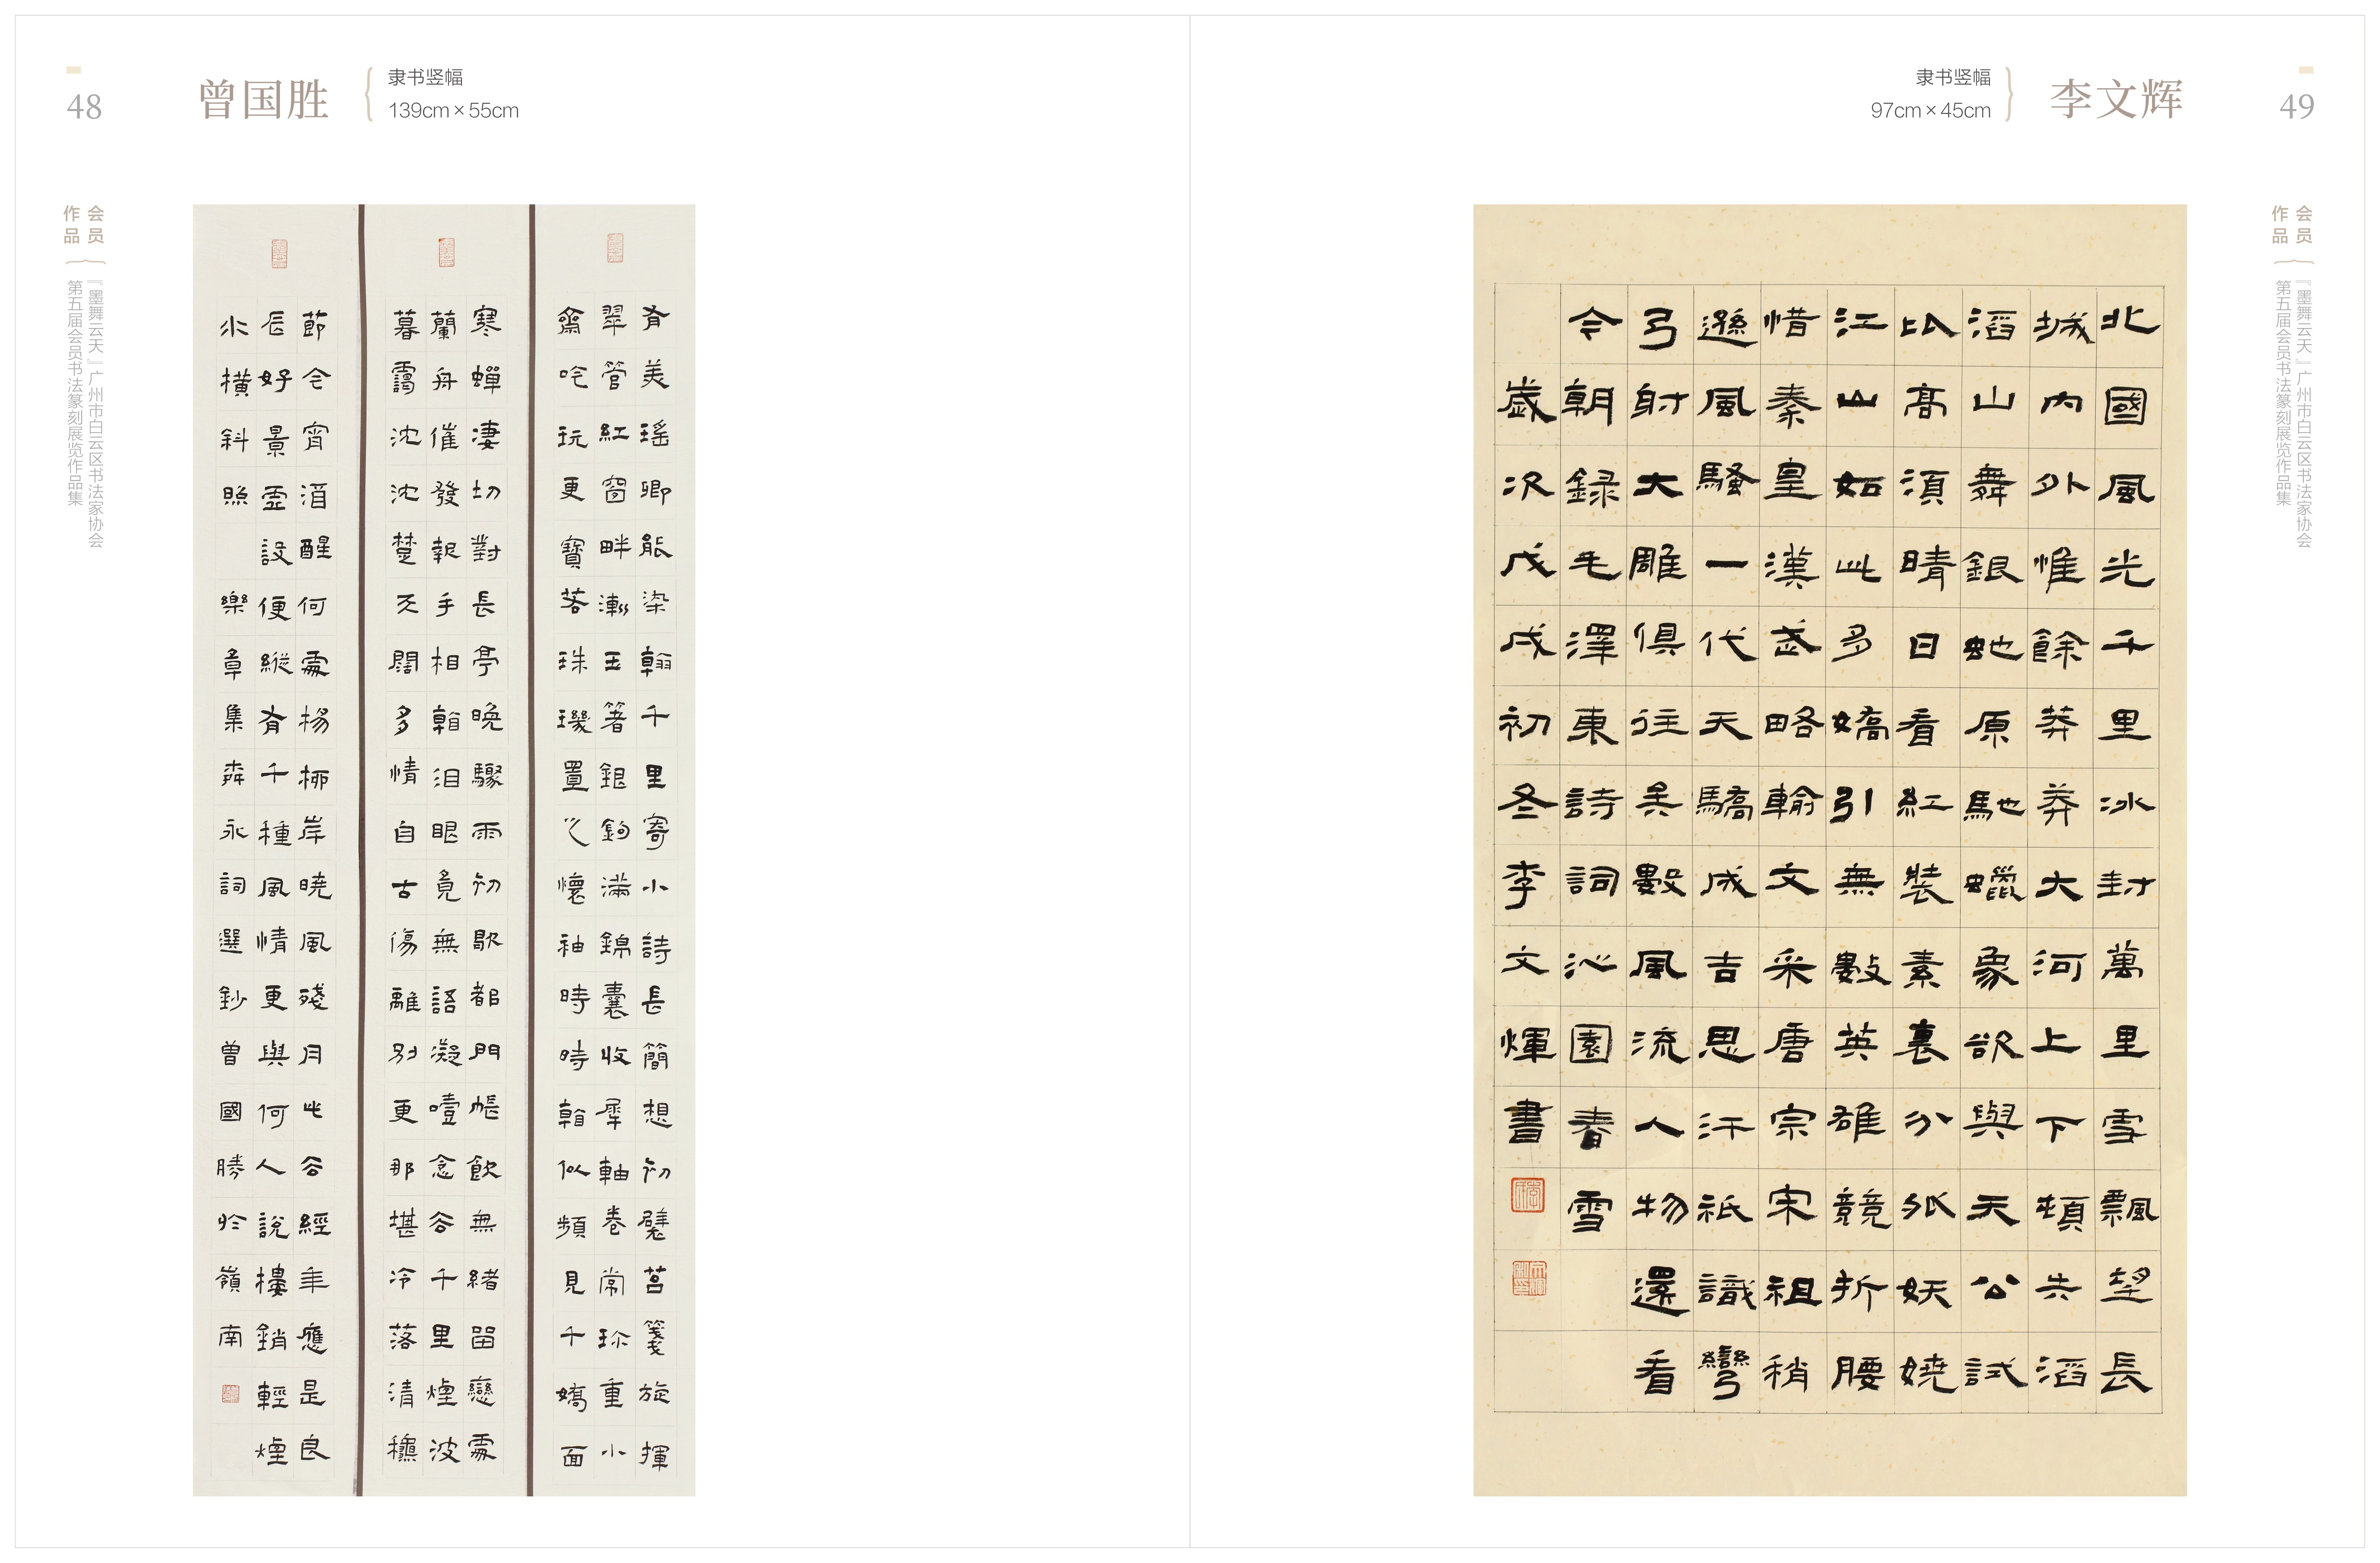 48
曾国胜
隶书竖幅
139cm×55cm
会员
作品
『墨舞云天』广州市白云区书法家协会
第五届会员书法篆刻展览作品集
有美瑤卿能染翰千里寄小詩長簡想初襞苔箋旋揮
翠管紅窗畔漸玉箸銀鉤滿錦囊收犀軸卷常珍重小
齋吟玩更寶若珠璣置之懷袖時時看似頻見千嬌面
寒蟬淒切對長亭晚驟雨初歇都門帳飲無緒留戀處
蘭舟催發執手相看泪眼竟無語凝噎念去千里煙波
暮靄沈沈楚天闊多情自古傷離別更那堪冷落清穐
節今宵酒醒何處楊柳岸曉風殘月此去經年應是良
辰好景虛設便縱有千種風情更與何人說樓鎖輕煙
水橫斜照 樂章集永詞選鈔曾國勝於嶺南
49
李文辉
隶书竖幅
97cm×45cm
会员
作品
『墨舞云天』广州市白云区书法家协会
第五届会员书法篆刻展览作品集
北國風光千里冰封萬里雪飄望長
城內外惟餘莽莽大河上下頓失滔
滔山舞銀蛇原馳蠟象欲與天公試
比高須晴日看紅裝素裹分外妖嬈
江山如此多嬌引無數英雄競折腰
惜秦皇漢武略輸文采唐宗宋祖稍
遜風騷一代天驕成吉思汗祇識彎
弓射大雕俱往矣數風流人物還看
今朝録毛澤東詩詞沁園春雪
歲次戊戌初冬李文煇書